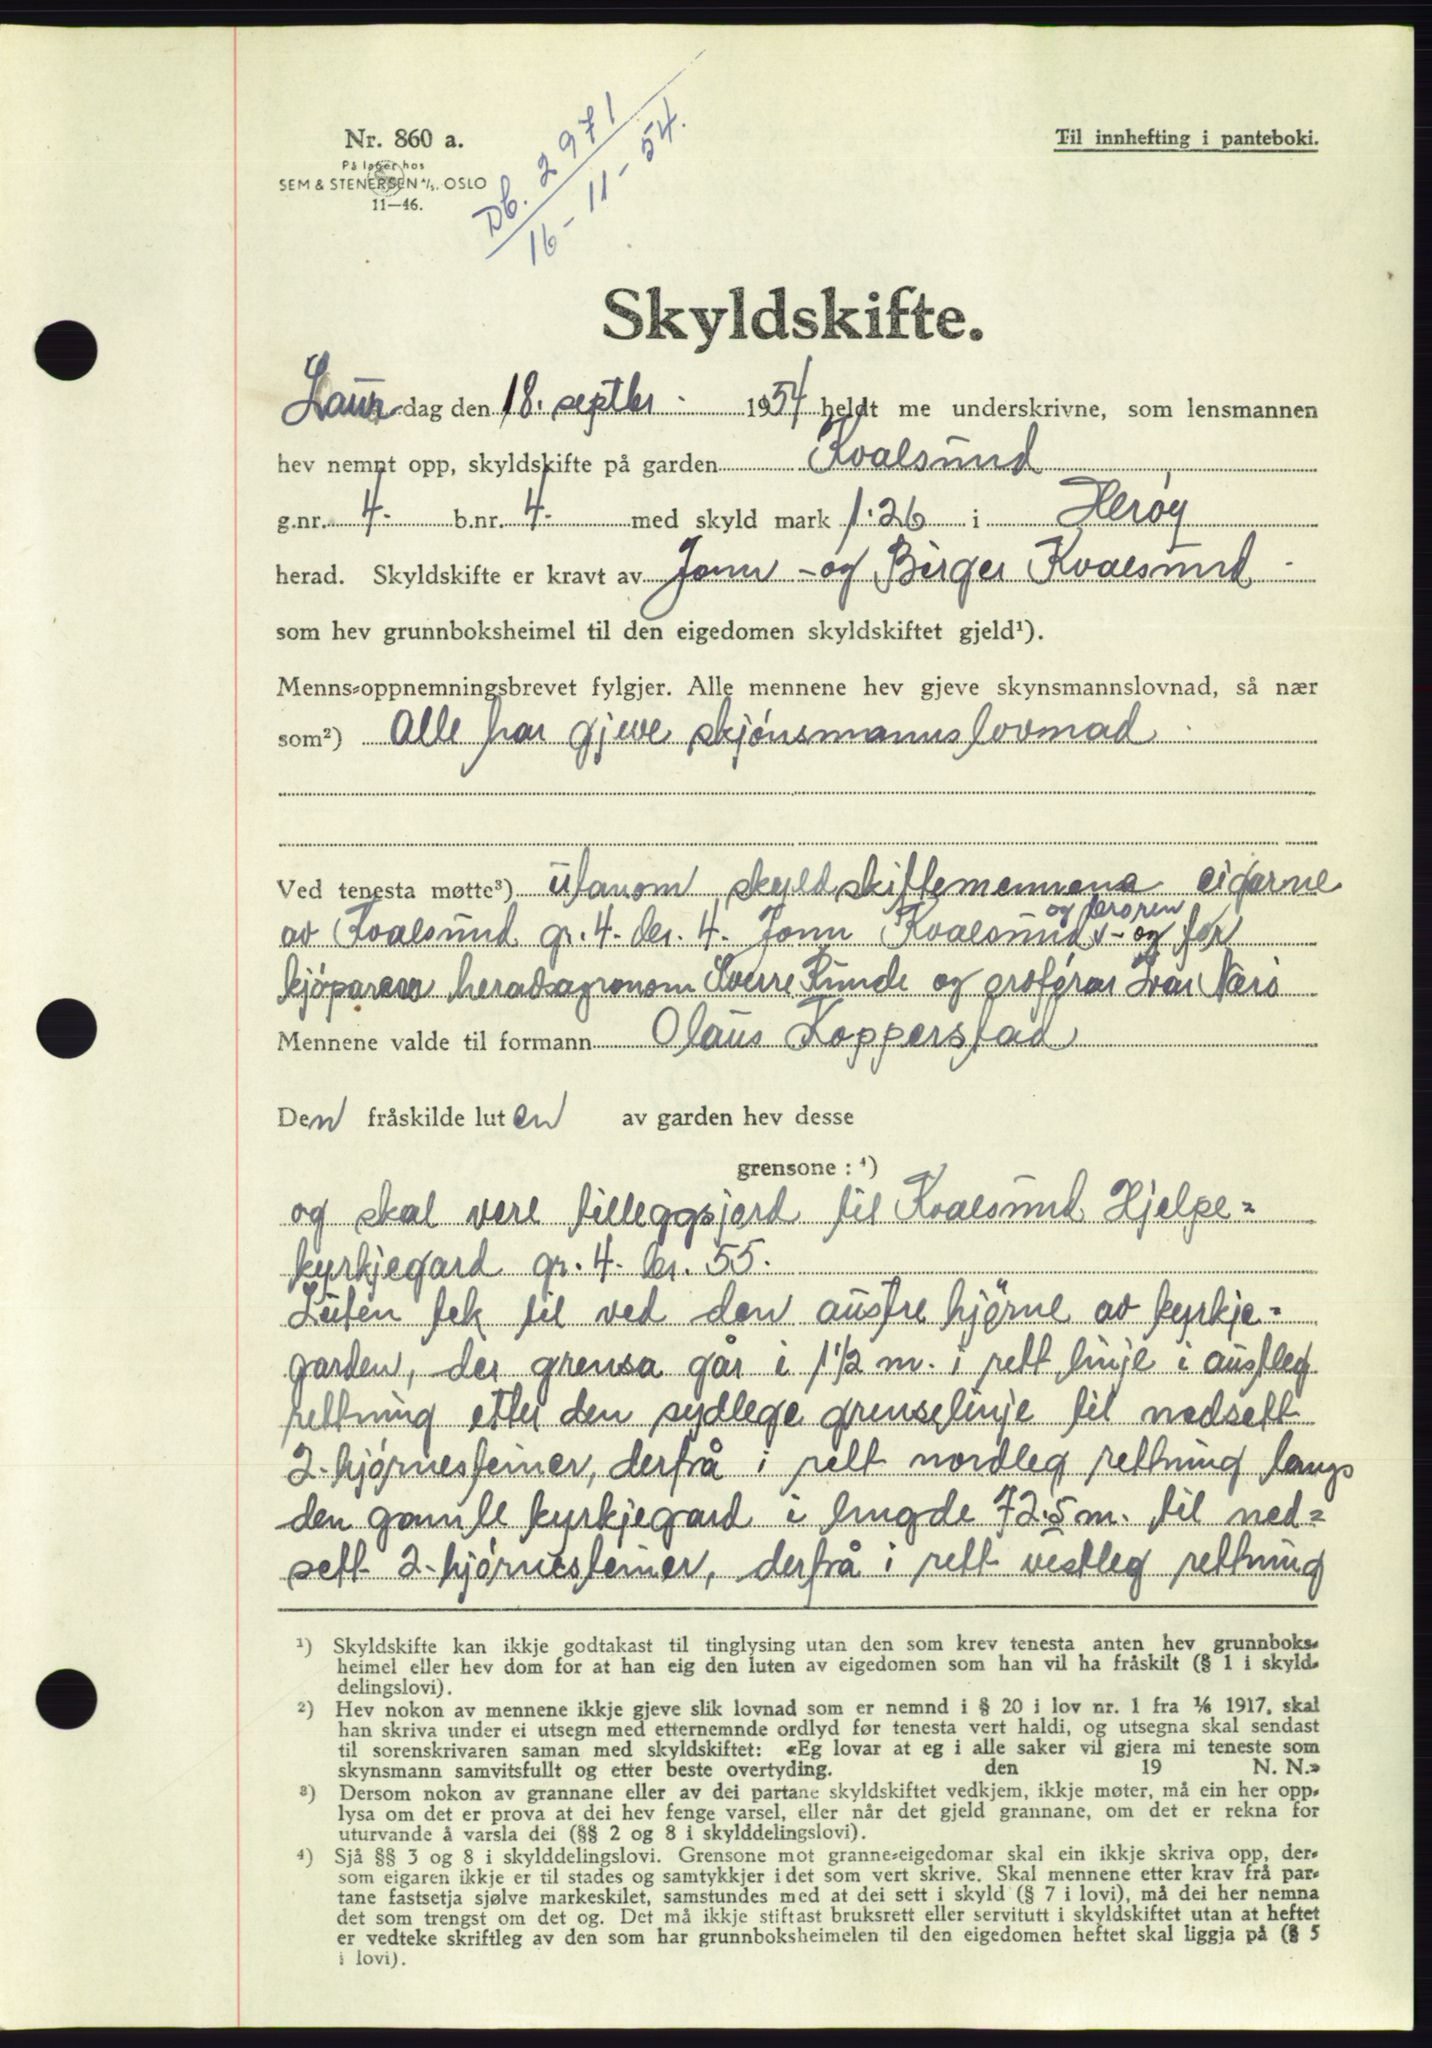 Nr. 860 a.
På lager hos
SEM & STENERSEN A/S, OSLO
11—46.
Db. 2971
16-11-54.
Til innhefting i panteboki.
Skyldskifte.
Laur dag den 18. septbr. 1954 heldt me underskrivne, som lensmannen
hev nemnt opp, skyldskifte på garden Kvalsund
g.nr. 4. b.nr. 4. med skyld mark 1.26 i Herøy
herad. Skyldskifte er kravt av Jonn - og Birger Kvalsund
som hev grunnboksheimel til den eigedomen skyldskiftet gjeld¹).
Menns-oppnemningsbrevet fylgjer. Alle mennene hev gjeve skynsmannslovnad, så nær
som²) Alle har gjeve skjönsmannslovnad
Ved tenesta møtte³) utanom skyldskiftemennene eigarne
og broren
av Kvalsund gr. 4. br. 4. Jonn Kvalsund - og for
kjöparen heradsagronom Sverre Runde og Ivar Nærö
Mennene valde til formann Olaus Kopperstad
Den fråskilde luten av garden hev desse
grensone: ⁴)
og skal vere tilleggsjord til Kvalsund Hjelpe=
kyrkjegard gr. 4. br. 55.
Luten tek til ved den austre hjörne av kyrkje=
garden, der grensa går i 1½ m. i rett linje i austleg
rettning etter den sydlege grenselinje til nedsett
2-hjörnesteiner, derfrå i rett nordleg rettning langs
den gamle kyrkjegard i lengde 72.5 m. til ned=
sett 2-hjörnesteiner, derfrå i rett vestleg rettning
¹) Skyldskifte kan ikkje godtakast til tinglysing utan den som krev tenesta anten hev grunnboks-
heimel eller hev dom for at han eig den luten av eigedomen som han vil ha fråskilt (§ 1 i skyld-
delingslovi).
²) Hev nokon av mennene ikkje gjeve slik lovnad som er nemnd i § 20 i lov nr. 1 fra 1/6 1917, skal
han skriva under ei utsegn med etternemnde ordlyd før tenesta vert haldi, og utsegna skal sendast
til sorenskrivaren saman med skyldskiftet: «Eg lovar at eg i alle saker vil gjera mi teneste som
skynsmann samvitsfullt og etter beste overtyding. den 19 N. N.»
³) Dersom nokon av grannane eller av dei partane skyldskiftet vedkjem, ikkje møter, må ein her opp-
lysa om det er prova at dei hev fenge varsel, eller når det gjeld grannane, om det er rekna for
uturvande å varsla dei (§§ 2 og 8 i skylddelingslovi).
⁴) Sjå §§ 3 og 8 i skylddelingslovi. Grensone mot granne-eigedomar skal ein ikkje skriva opp, der-
som eigaren ikkje er til stades og samtykkjer i det som vert skrive. Skal mennene etter krav frå par-
tane fastsetja sjølve markeskilet, samstundes med at dei sett i skyld (§ 7 i lovi), må dei her nemna
det som trengst om det og. Det må ikkje stiftast bruksrett eller servitutt i skyldskiftet utan at heftet
er vedteke skriftleg av den som har grunnboksheimelen til den eigedomen heftet skal liggja på (§ 5
i lovi).